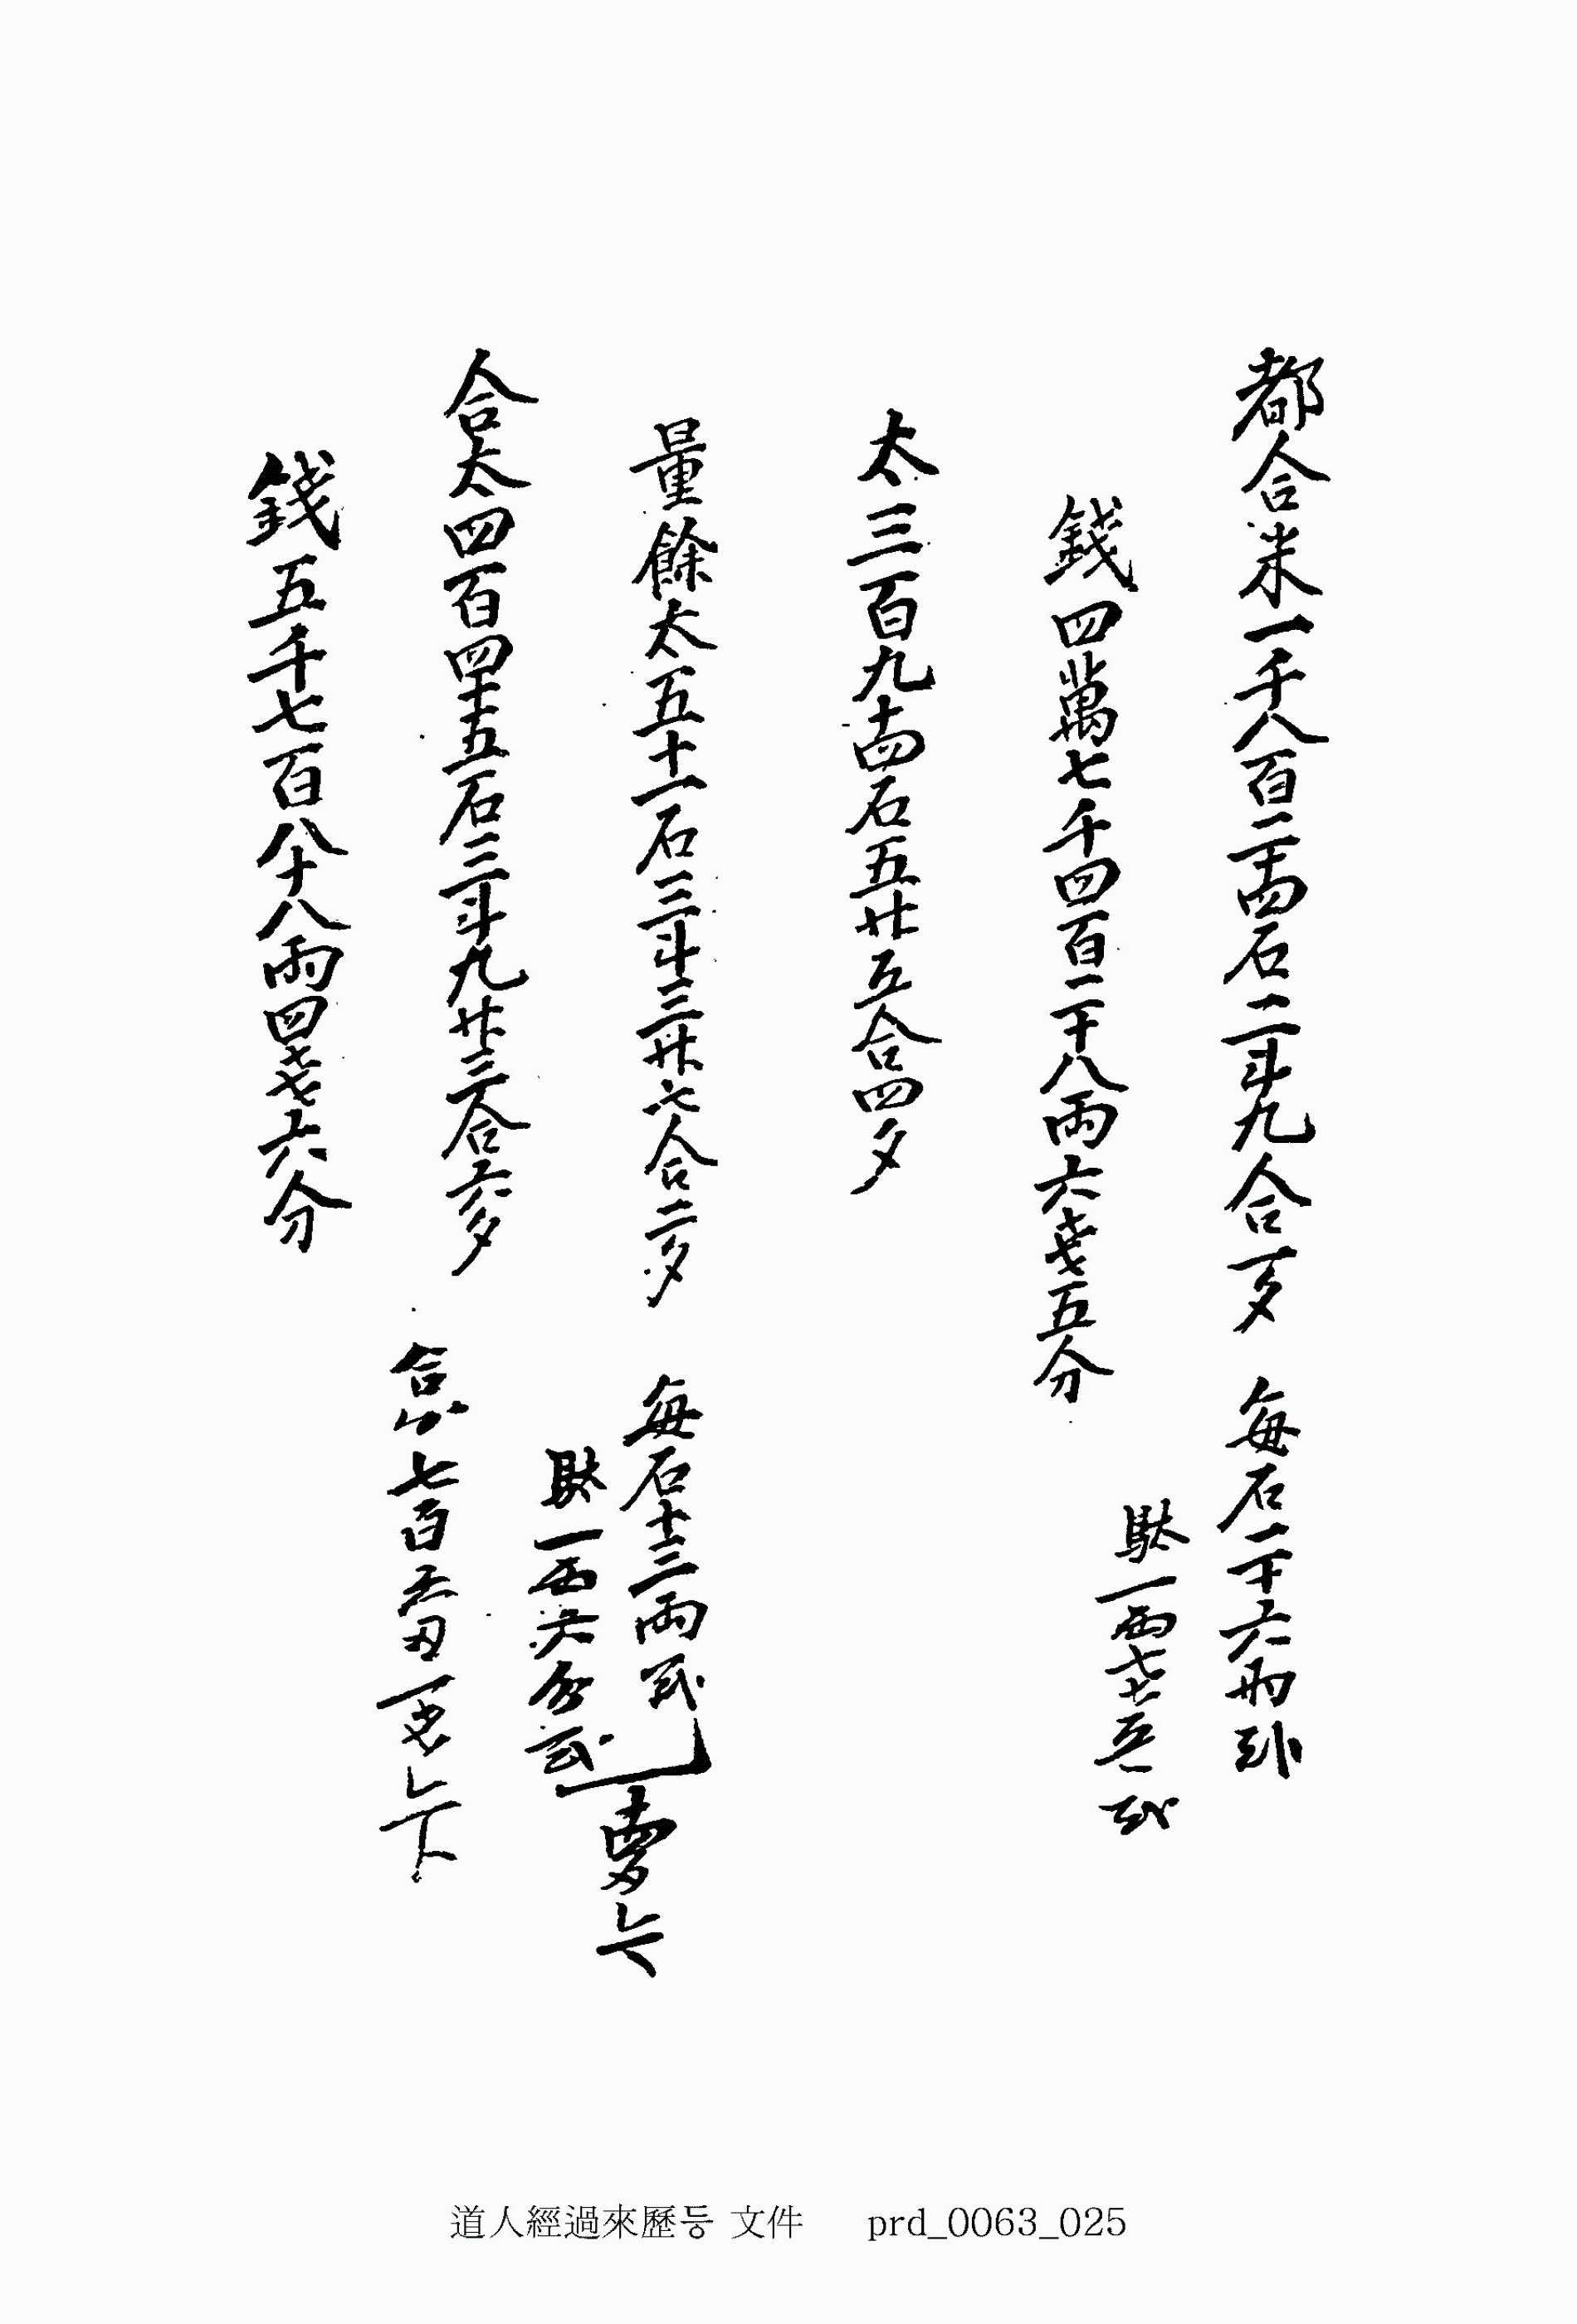 都合米一千八百二十四石二斗九合一夕 每石二十六兩式
錢四萬七千四百二十八兩六戔五分 駄一兩七戔五 式
太三百九十四石五升五合四夕
量餘太五十一石三斗三升七合二夕 每石十三兩式
駄一兩六分式
合太四百四十五石三斗九升三合六夕
合 七百
錢五千七百八十八兩四戔六分
道人經過來歷등 文件 prd_0063_025